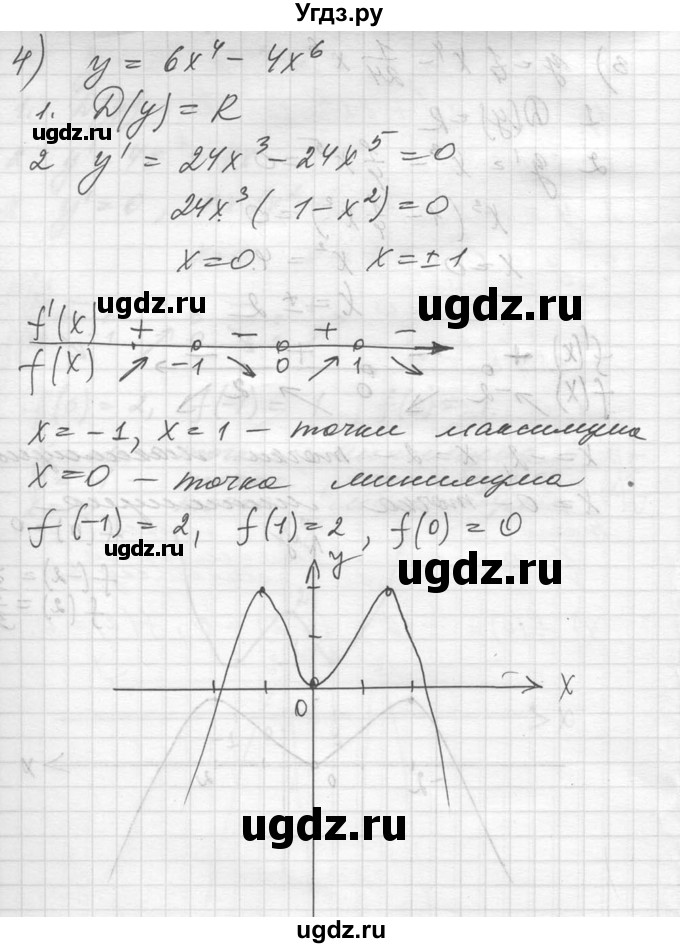 Угдз.ру
4) y = 6x⁴ – 4x⁶
1. D(y) = R
ugdz.ru
2 y' = 24x³ – 24x⁵ = 0
24x³(1 – x²) = 0
x = 0 x = ±1
ugdz.ru
ugdz.ru
f'(x) + – + –
f(x) ↗ –1 ↘ 0 ↗ 1 ↘
x = –1, x = 1 – точки максимума
x = 0 – точка минимума .
f(–1) = 2, f(1) = 2, f(0) = 0
ugdz.ru
ugdz.ru
y
x
0
ugdz.ru
Угдз.ру